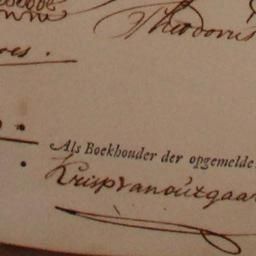 Theodorus
Als Boekhouder der opgemelde
Krispvanoutgaar